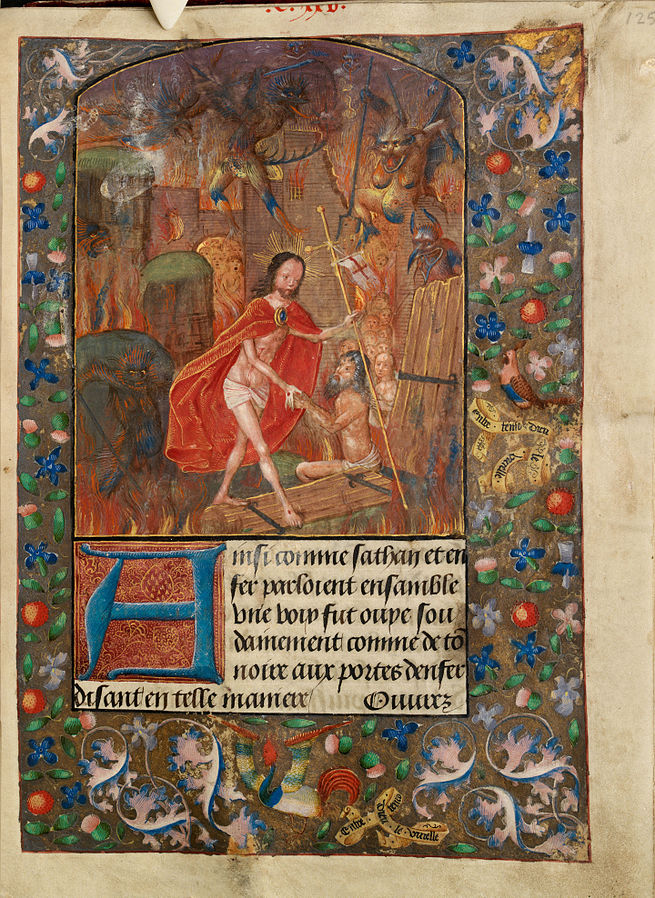 .C. xxv.
125
Ainsi comme sathan et en
fer parloient ensamble
vne voix fut ouye sou
damement comme de tõ
noire aux portes denfer
disant en telle maniere Ouurez
entre tenir dieu
le vueille
Entre tenir
dieu
le vueille